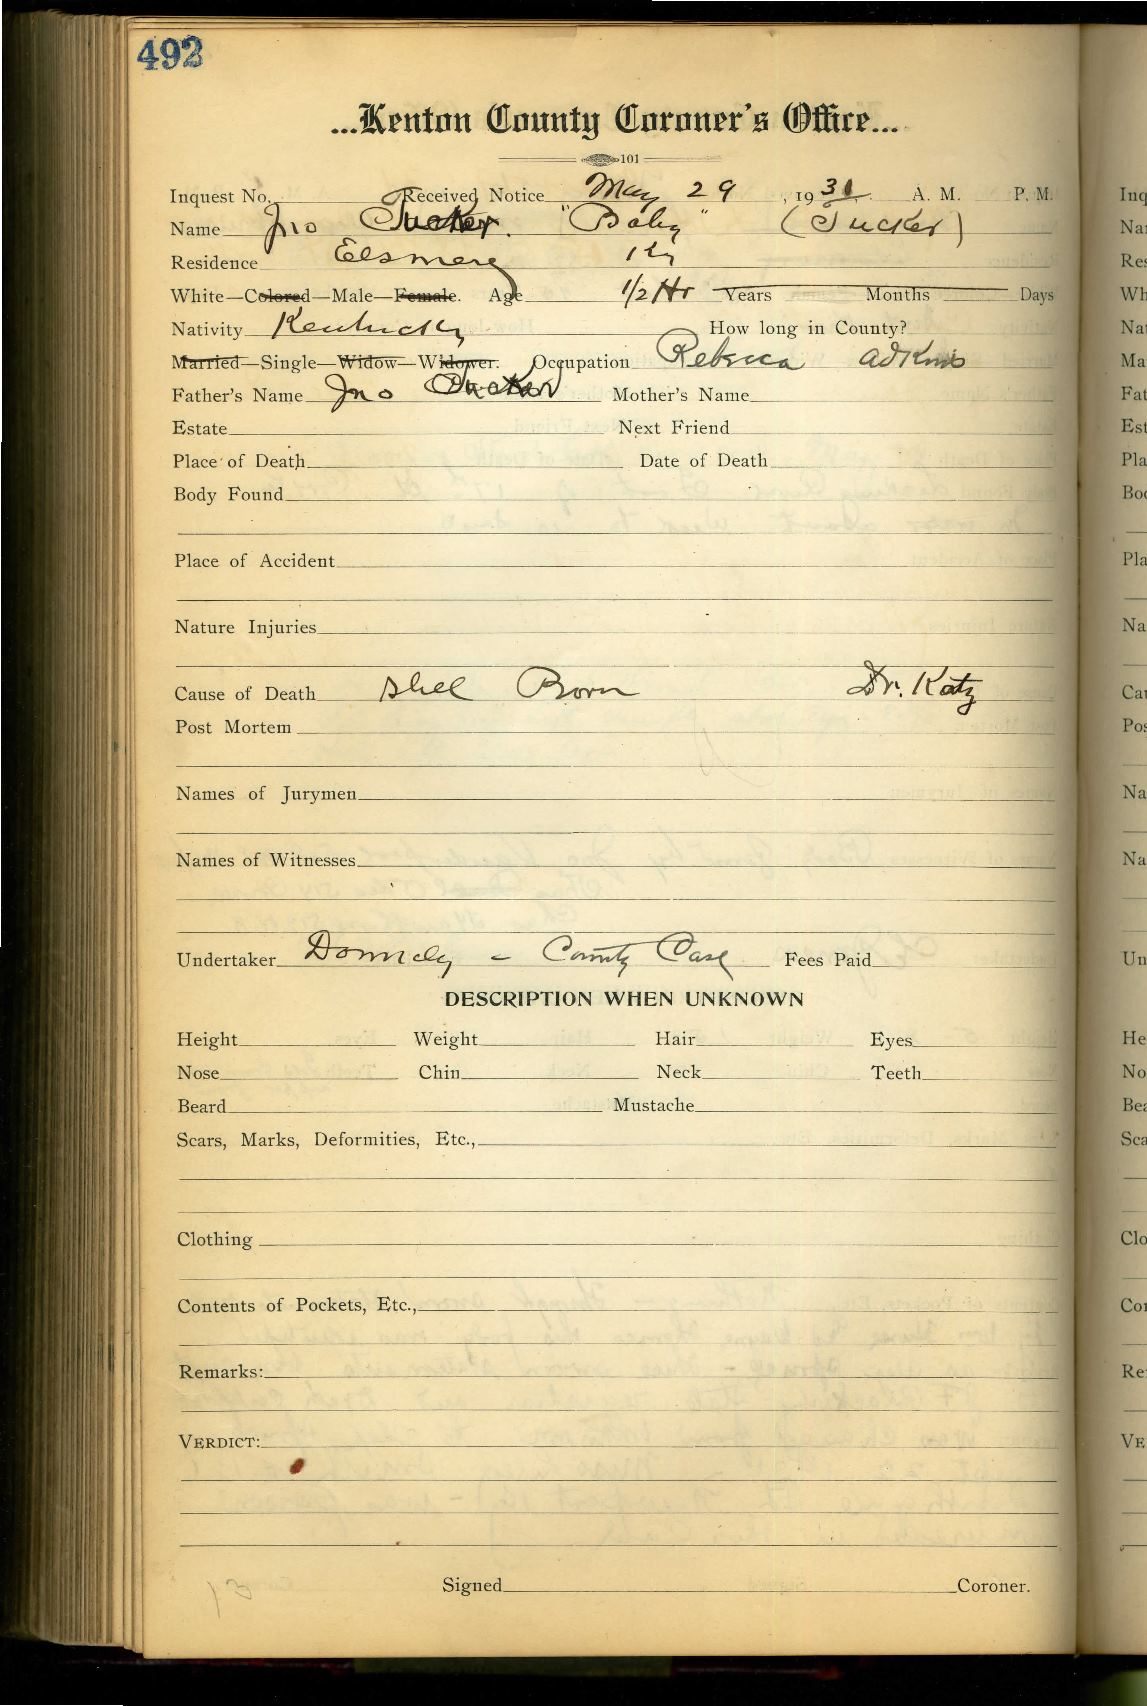 492
...Kenton County Coroner's Office...
101
Inquest No. Received Notice May 29, 1931. A. M. P. M.
Name Jno Tucker. "Baby" (Tucker)
Residence Elsmere Ky
White—Colored—Male—Female. Age 1/2 Hr Years Months Days
Nativity Kentucky How long in County?
Married—Single—Widow—Widower. Occupation Rebecca Adkins
Father's Name Jno Tucker Mother's Name
Estate Next Friend
Place of Death Date of Death
Body Found
Place of Accident
Nature Injuries
Cause of Death Still Born Dr. Katz
Post Mortem
Names of Jurymen
Names of Witnesses
Undertaker Donnely - County Case Fees Paid
DESCRIPTION WHEN UNKNOWN
Height Weight Hair Eyes
Nose Chin Neck Teeth
Beard Mustache
Scars, Marks, Deformities, Etc.,
Clothing
Contents of Pockets, Etc.,
Remarks:
VERDICT:
Signed Coroner.
Inq
Na
Res
Wh
Nat
Ma
Fat
Est
Pla
Boo
Pla
Na
Cau
Pos
Na
Na
Un
He
No
Bea
Sca
Clo
Con
Re
VE